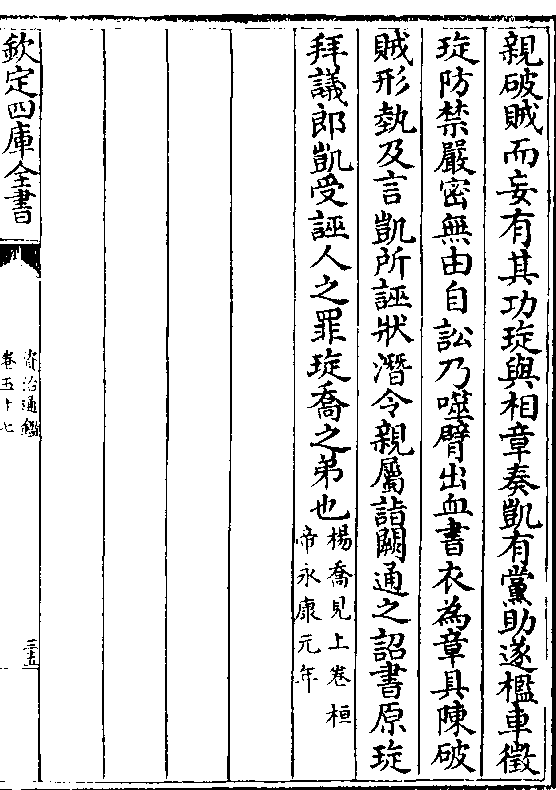 親破賊而妄有其功琁與相章奏凱有黨助遂檻車徵
琁防禁嚴密無由自訟乃噬臂出血書衣為章具陳破
賊形埶及言凱所誣狀潛令親屬詣闕通之詔書原琁
拜議郎凱受誣人之罪琁喬之弟也楊喬見上卷桓
帝永康元年
欽定四庫全書
資治通鑑
卷五十七
三十五